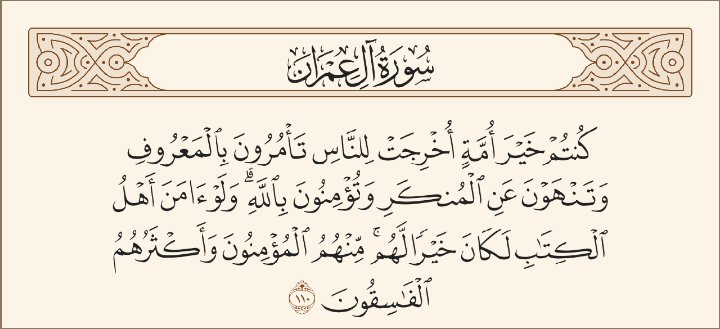 سُورَةُ آلِ عِمْرَانَ
كُنتُمْ خَيْرَ أُمَّةٍ أُخْرِجَتْ لِلنَّاسِ تَأْمُرُونَ بِٱلْمَعْرُوفِ
وَتَنْهَوْنَ عَنِ ٱلْمُنكَرِ وَتُؤْمِنُونَ بِٱللَّهِ ۗ وَلَوْ ءَامَنَ أَهْلُ
ٱلْكِتَـٰبِ لَكَانَ خَيْرًا لَّهُم ۚ مِّنْهُمُ ٱلْمُؤْمِنُونَ وَأَكْثَرُهُمُ
ٱلْفَـٰسِقُونَ ١١٠